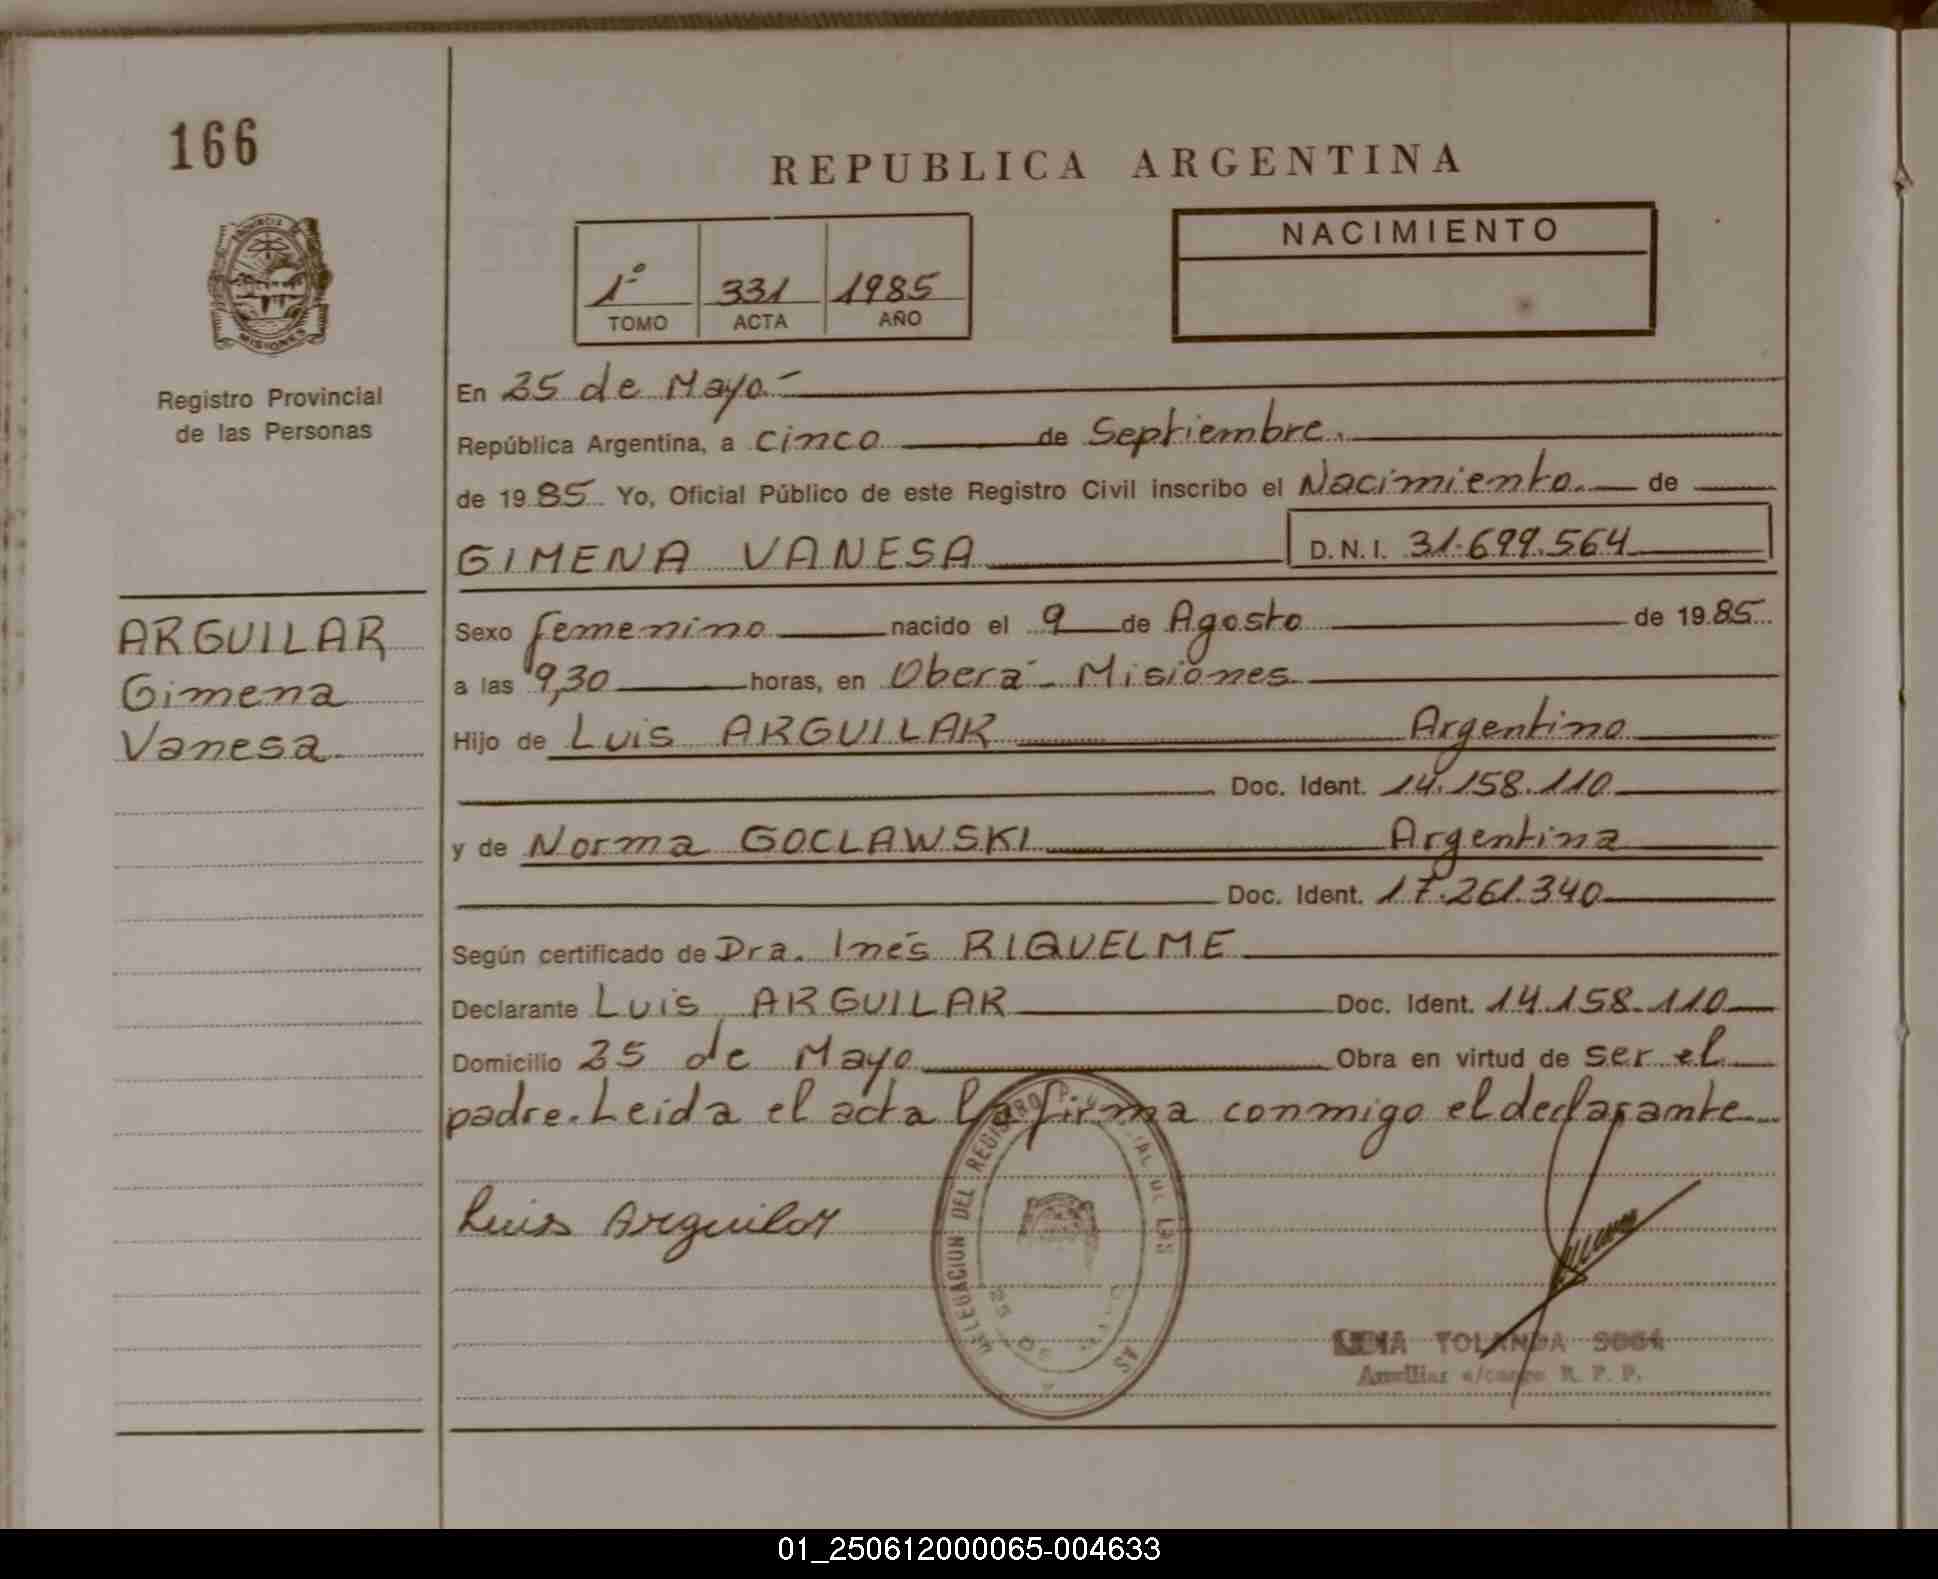 166
REPUBLICA ARGENTINA
NACIMIENTO
1º 331 1985
TOMO ACTA AÑO
PROVINCIA DE
MISIONES
Registro Provincial
de las Personas
En 25 de Mayo.-
República Argentina, a cinco de Septiembre.
de 1985 Yo, Oficial Público de este Registro Civil inscribo el Nacimiento. de
GIMENA VANESA D.N.I. 31.699.564
ARGUILAR
Gimena
Vanesa.
Sexo femenino nacido el 9 de Agosto de 1985
a las 9,30 horas, en Oberá - Misiones
Hijo de Luis ARGUILAR Argentino
Doc. Ident. 14.158.110
y de Norma GOCLAWSKI Argentina
Doc. Ident. 17.261.340
Según certificado de Dra. Inés RIQUELME
Declarante Luis ARGUILAR Doc. Ident. 14.158.110
Domicilio 25 de Mayo Obra en virtud de ser el
padre. Leida el acta la firma conmigo el declarante
Luis Arguilar
DELEGACION DEL REGISTRO
25 DE
YOLANDA
Auxiliar a/cargo R. P. P.
01_250612000065-004633